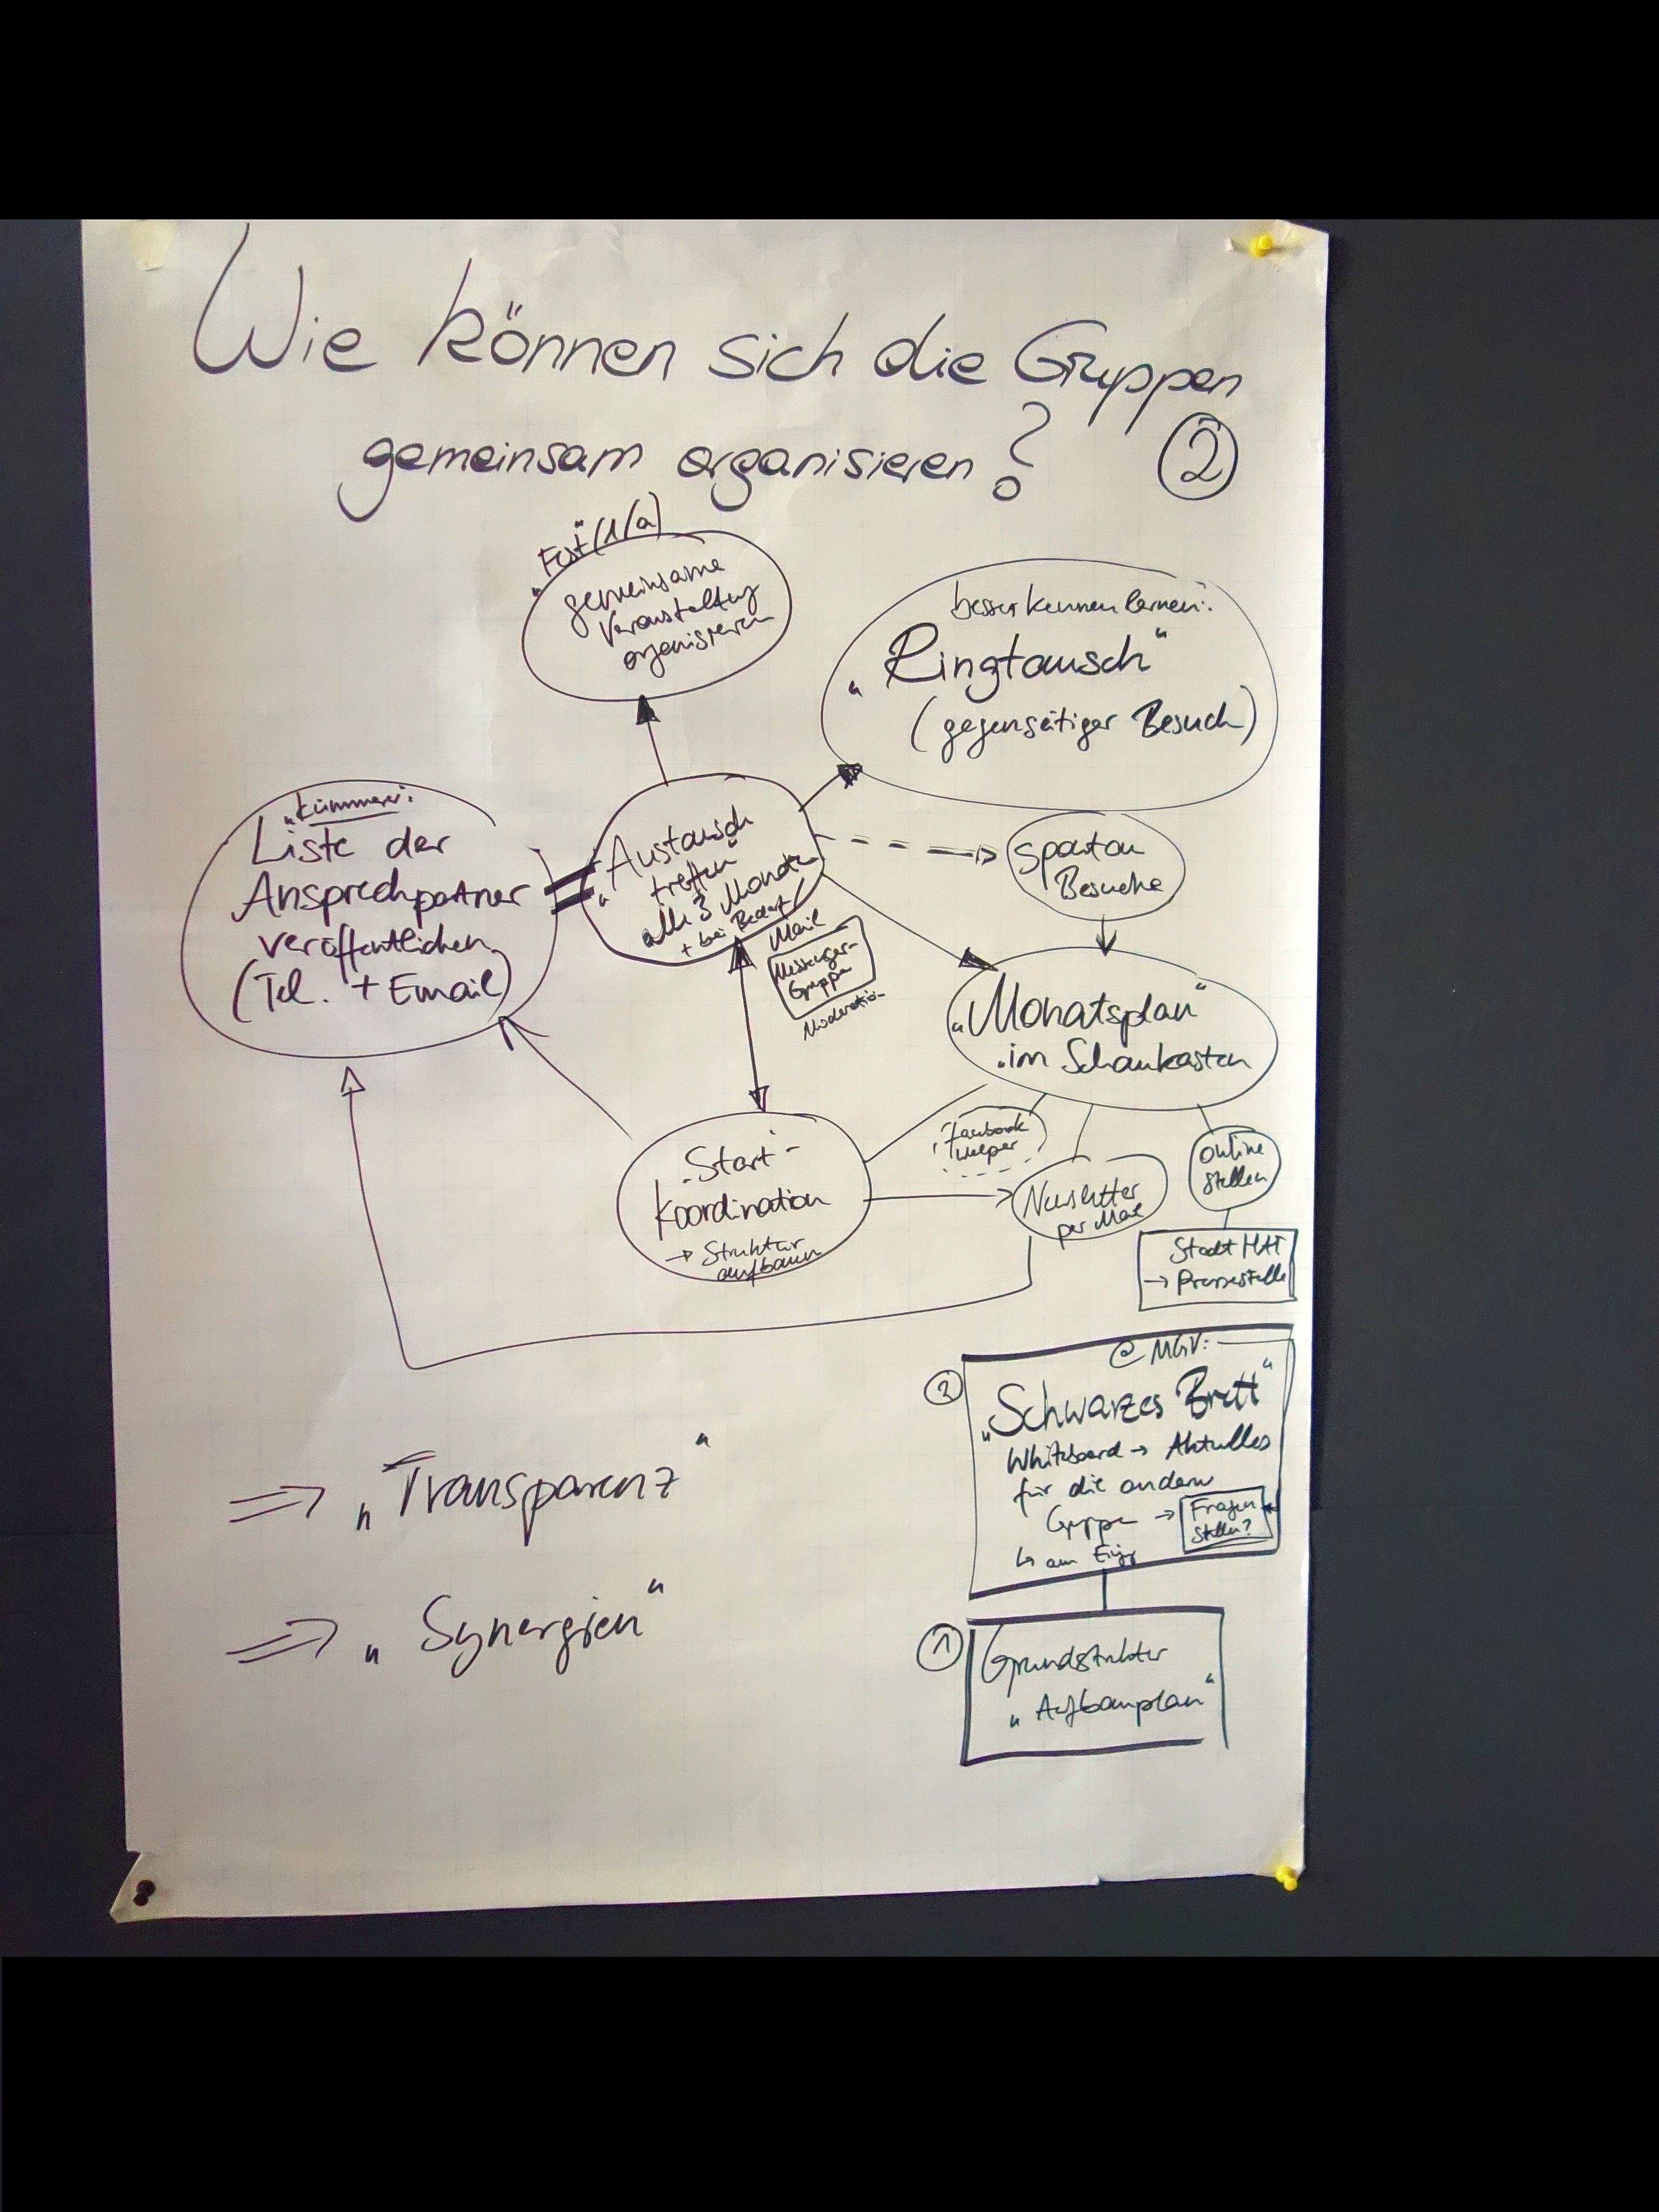 Wie können sich die Gruppen
gemeinsam organisieren?
2
"Fest" (1/a)
gemeinsame
Veranstaltung
organisieren
besser kennen lernen:
"Ringtausch"
(gegenseitiger Besuch)
"Kümmerer:
Liste der
Ansprechpartner
veröffentlichen
(Tel. + Email)
=
"Austausch
treffen"
alle 3 Monate
+ bei Bedarf
Mail
Messenger-
Gruppe
Moderation
spontan
Besuche
"Monatsplan"
im Schaukasten
Start-
koordination
→ Struktur
aufbauen
Facebook
Newsletter
per Mail
online
stellen
Stadt HAT
→ Pressestelle
@ MGV:
2
"Schwarzes Brett"
Whiteboard → Aktuelles
für die andern
Gruppe → Fragen
stellen?
↳ am Eing
1
Grundstruktur
"Aufbauplan"
⇒ "Transparenz"
⇒ "Synergien"